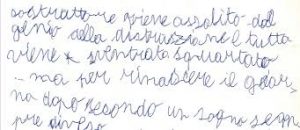 costruttore viene assalito dal
genio della distruzione e tutta
viene sventrata squartata
... ma per rinascere il gior
no dopo secondo un sogno sem
pre diverso